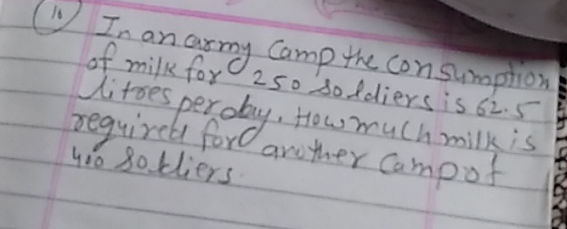 16 In an army Camp the Consumption
of milk for 250 soldiers is 62.5
litres per day. How much milk is
required for another Camp of
400 soldiers.